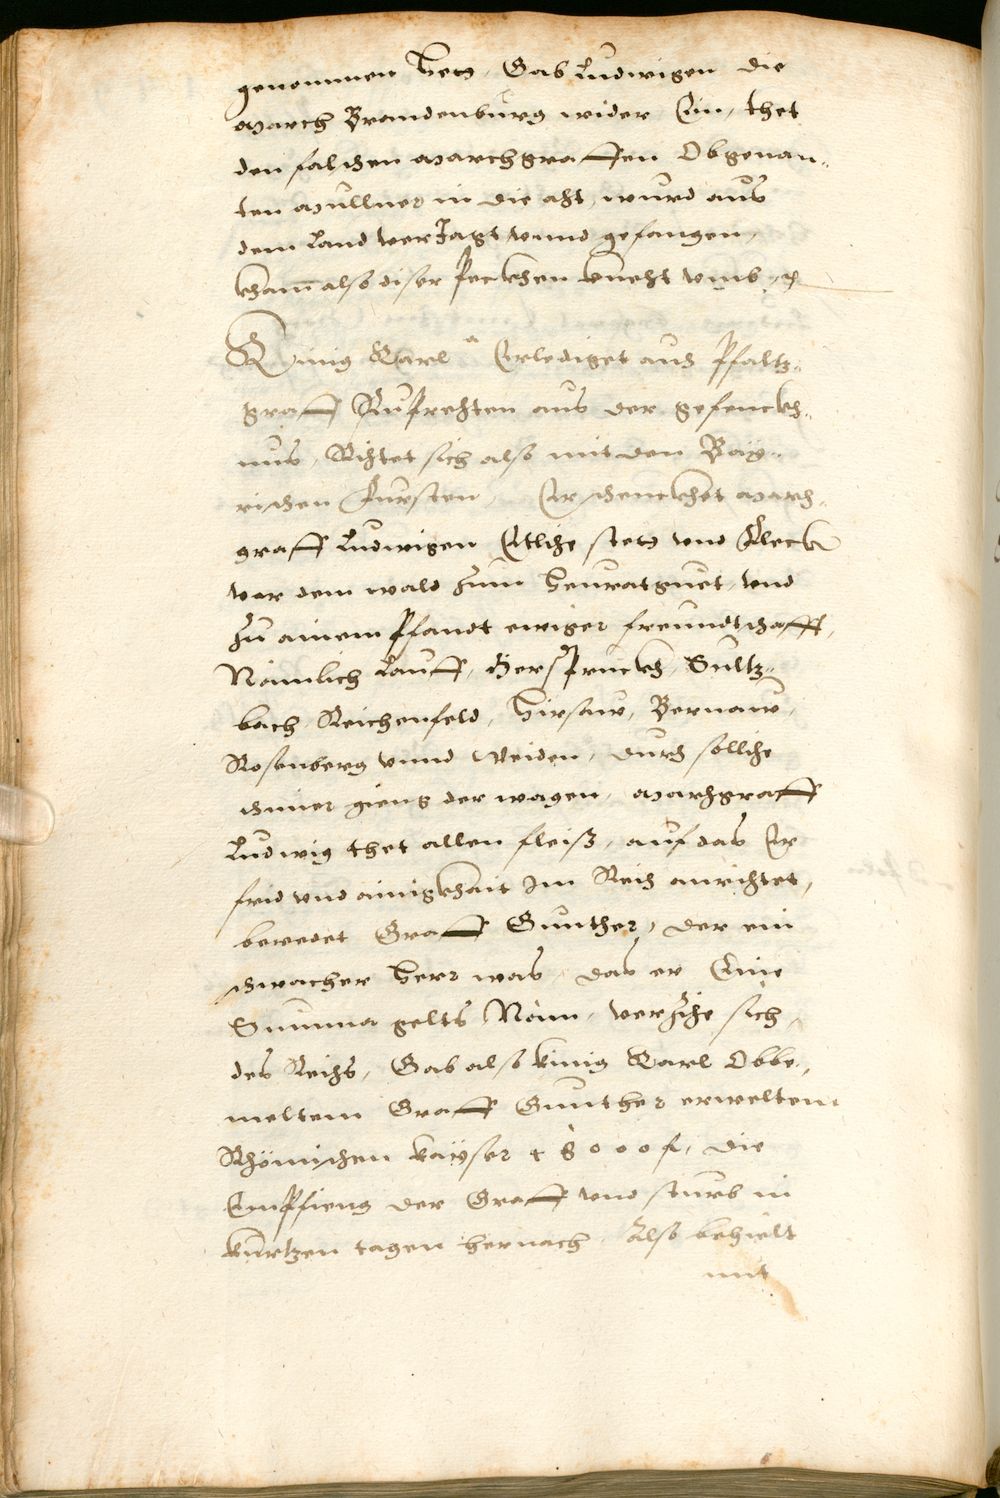 genommen het, Gab Ludwigen die
March Brandenburg wider Ein, thet
den falschen Marchgraffen Obgenan„
ten Mullner in die aht, wurd aus
dem Land verJagt vnnd gefangen,
kham also diser Peckhen knecht vmb
Künig Carl Erlediget aus Pfaltz„
graff Ruprechten aus der gefenckh„
nus, Richtet sich also mit den Bay„
rischen Fursten, Er schenckhet March„
graff Ludwigen Etliche stett vnd Fleck
vor dem wald zum heuratguet, vnd
zu ainem Pfandt ewiger freundtschafft,
Nämlich Lauff, Hersprückh, Sultz„
bach Reichenfeld, Hirsaw, Bernaw,
Rosenberg vnnd Weiden, durch solliche
schmer gieng der wagen, Marchgraff
Ludwig thet allen fleiß, auf das Er
frid vnd ainigkhait Im Reich anrichtet,
beredet Graff Gunther, der ein
schwacher Herr was, das er Eine
Summa gelts Näm, verzihe sich
des Reichs, Gab also künig Carl Obbe„
meltem Graff Gunther erweltem
Rhömischen kayser 18000 f, die
Empfieng der Graff vnd sturb in
kurtzen tagen hernach. Also behielt
mit